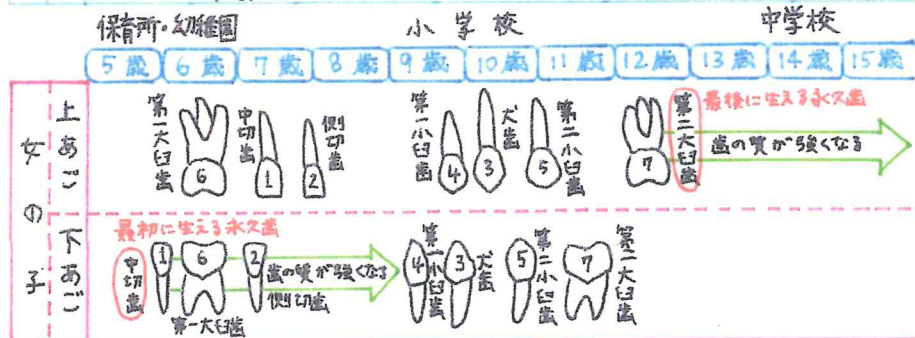 保育所・幼稚園 小学校 中学校
5歳 6歳 7歳 8歳 9歳 10歳 11歳 12歳 13歳 14歳 15歳
女の子
上あご
第一大臼歯
6
中切歯
1
側切歯
2
第一小臼歯
4
犬歯
3
第二小臼歯
5
7
第二大臼歯
最後に生える永久歯
歯の質が強くなる
下あご
最初に生える永久歯
中切歯
1
6
第一大臼歯
2
歯の質が強くなる
側切歯
4
第一小臼歯
3
犬歯
5
第二小臼歯
7
第二大臼歯